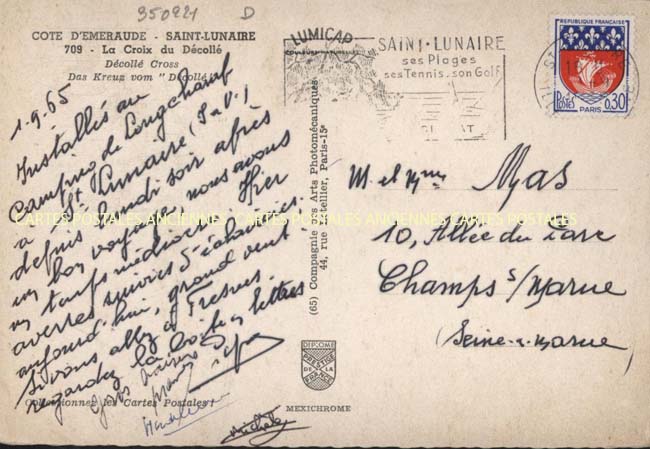 350921 D
COTE D'EMERAUDE - SAINT-LUNAIRE
709 - La Croix du Décollé
Décollé Cross
Das Kreuz vom "Décollé
1-9-65
Installés au
Camping de Longchamp
à St Lunaire (I.&V.)
depuis lundi soir après
un bon voyage nous avons
un temps médiocre. Hier
averses suivies d'éclaircies.
aujourd'hui, grand vent.
Si vous allez à Fresnes.
regardez la boîte à lettres
Gros baisers
Collectionnez les Cartes Postales !
Michel
(65) Compagnie des Arts Photomécaniques
44, rue Letellier, Paris-15e
LUMICAP
COULEURS NATURELLES
DIPLOME
PRESTIGE
DE LA
FRANCE
MEXICHROME
SAINT-LUNAIRE
ses Plages
ses Tennis. son Golf
REPUBLIQUE FRANÇAISE
POSTES
0,30
PARIS
M. et Mme Mas
10, Allée du Parc
Champs s/Marne
(Seine-&-Marne)
CARTES POSTALES ANCIENNES CARTES POSTALES ANCIENNES CARTES POSTALES